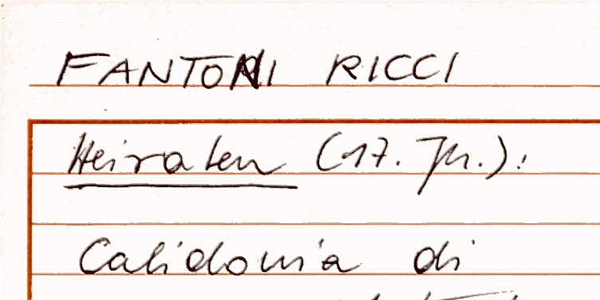 FANTONI RICCI
Heiraten (17. Jh.):
Calidonia di